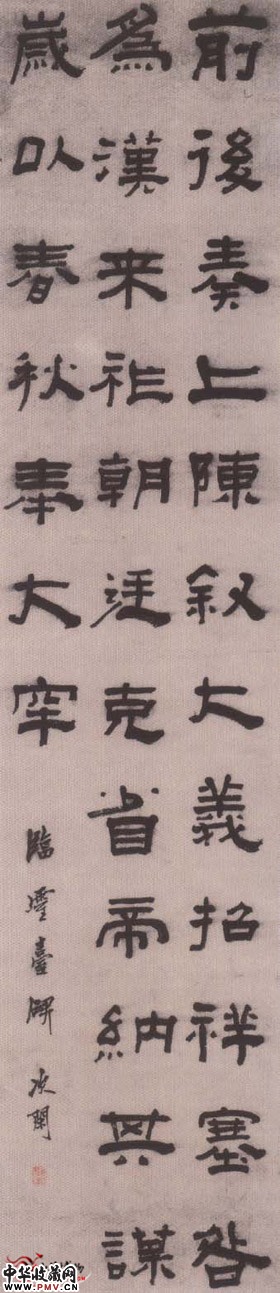 前後奏上陳叙大義招祥塞咎
為漢来祚朝廷克省帝納其謀
歲以春秋奉大牢
臨靈臺碑 次閑
中华收藏网
www.PMV.cn